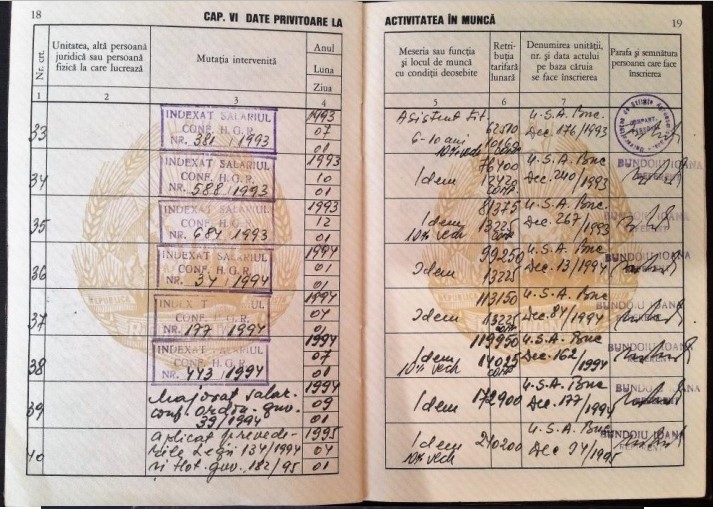 18
CAP. VI DATE PRIVITOARE LA
Nr. crt.
Unitatea, altă persoană
juridică sau persoană
fizică la care lucrează
Mutația intervenită
Anul
Luna
Ziua
1 2 3 4
33
INDEXAT SALARIUL
CONF. H. G. R.
NR. 381 / 1993
1993
07
01
34
INDEXAT SALARIUL
CONF. H. G. R.
NR. 588 / 1993
1993
10
01
35
INDEXAT SALARIUL
CONF. H. G. R.
NR. 684 / 1993
1993
12
01
36
INDEXAT SALARIUL
CONF. H. G. R.
NR. 34 / 1994
1994
01
01
37
INDEXAT SALARIUL
CONF. H. G. R.
NR. 177 / 1994
1994
04
01
38
INDEXAT SALARIUL
CONF. H. G. R.
NR. 443 / 1994
1994
07
01
39
Majorat salar.
conf. ordon. guv.
39/1994
1994
09
01
40
Aplicat prevede-
rile Legii 134/1994
și Hot. guv. 182/95
1995
04
01
ACTIVITATEA ÎN MUNCĂ
19
Meseria sau funcția
și locul de muncă
cu condiții deosebite
Retri-
buția
tarifară
lunară
Denumirea unității,
nr. și data actului
pe baza căruia
se face înscrierea
Parafa și semnătura
persoanei care face
înscrierea
5 6 7 8
Asistent
6-10 ani
10% vech
62510
U.S.A. Buc.
Dec. 176/1993
Idem
76400
U.S.A. Buc
Dec. 240/1993
BUNDOIU IOANA
REFERENT
Idem
10% vech
81375
13225
U.S.A. Buc
Dec. 267/1993
BUNDOIU IOANA
REFERENT
Idem
99250
13225
U.S.A. Buc
Dec. 13/1994
BUNDOIU IOANA
REFERENT
Idem
113150
13225
U.S.A. Buc
Dec. 84/1994
BUNDOIU IOANA
REFERENT
Idem
10% vech
119950
14035
U.S.A. Buc
Dec. 162/1994
BUNDOIU IOANA
REFERENT
Idem
172900
U.S.A. Buc
Dec. 177/1994
BUNDOIU IOANA
REFERENT
Idem
10% vech
240200
U.S.A. Buc
Dec 74/1995
BUNDOIU IOANA
REFERENT